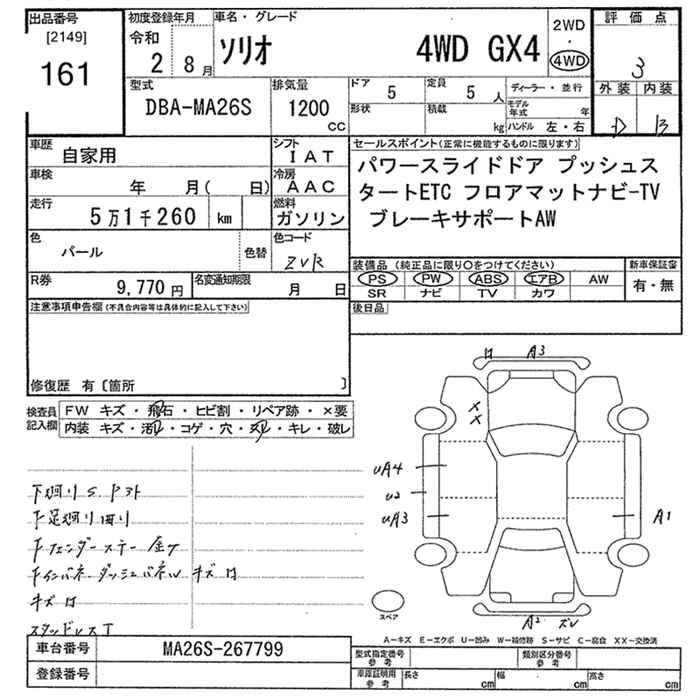 出品番号
[2149]
161
初度登録年月
令和
2 8月
車名・グレード
ソリオ 4WD GX4
2WD
・
4WD
評価点
3
外装 内装
D B
型式
DBA-MA26S
排気量
1200
CC
ドア 5 定員 5人
形状 積載 kg
ディーラー・並行
モデル年式 年
ハンドル 左・右
車歴
自家用
シフト
IAT
車検
年 月( 日)
冷房
AAC
走行
5万1千260 km
燃料
ガソリン
色
パール
色替
色コード
ZVR
R券
9,770円
名変通知期限
月 日
セールスポイント(正常に機能するものに限ります)
パワースライドドア プッシュス
タートETC フロアマットナビ-TV
ブレーキサポートAW
装備品(純正品に限り○をつけてください)
PS PW ABS エアB AW
SR ナビ TV カワ
新車保証書
有・無
後日品
注意事項申告欄(不具合内容等は具体的に記入して下さい)
修復歴 有〔箇所 〕
検査員記入欄
FW キズ・飛石・ヒビ割・リペア跡・×要
内装 キズ・汚れ・コゲ・穴・スレ・キレ・破レ
下廻りS
キズ
A3
XX
UA4
U2
UA3
A1
A2
スペア
A-キズ E-エクボ U-凹み W-補修跡 S-サビ C-腐食 XX-交換済
車台番号 MA26S-267799
登録番号
型式指定番号参考
類別区分番号参考
車庫証明用参考
長さ cm 幅 cm 高さ cm